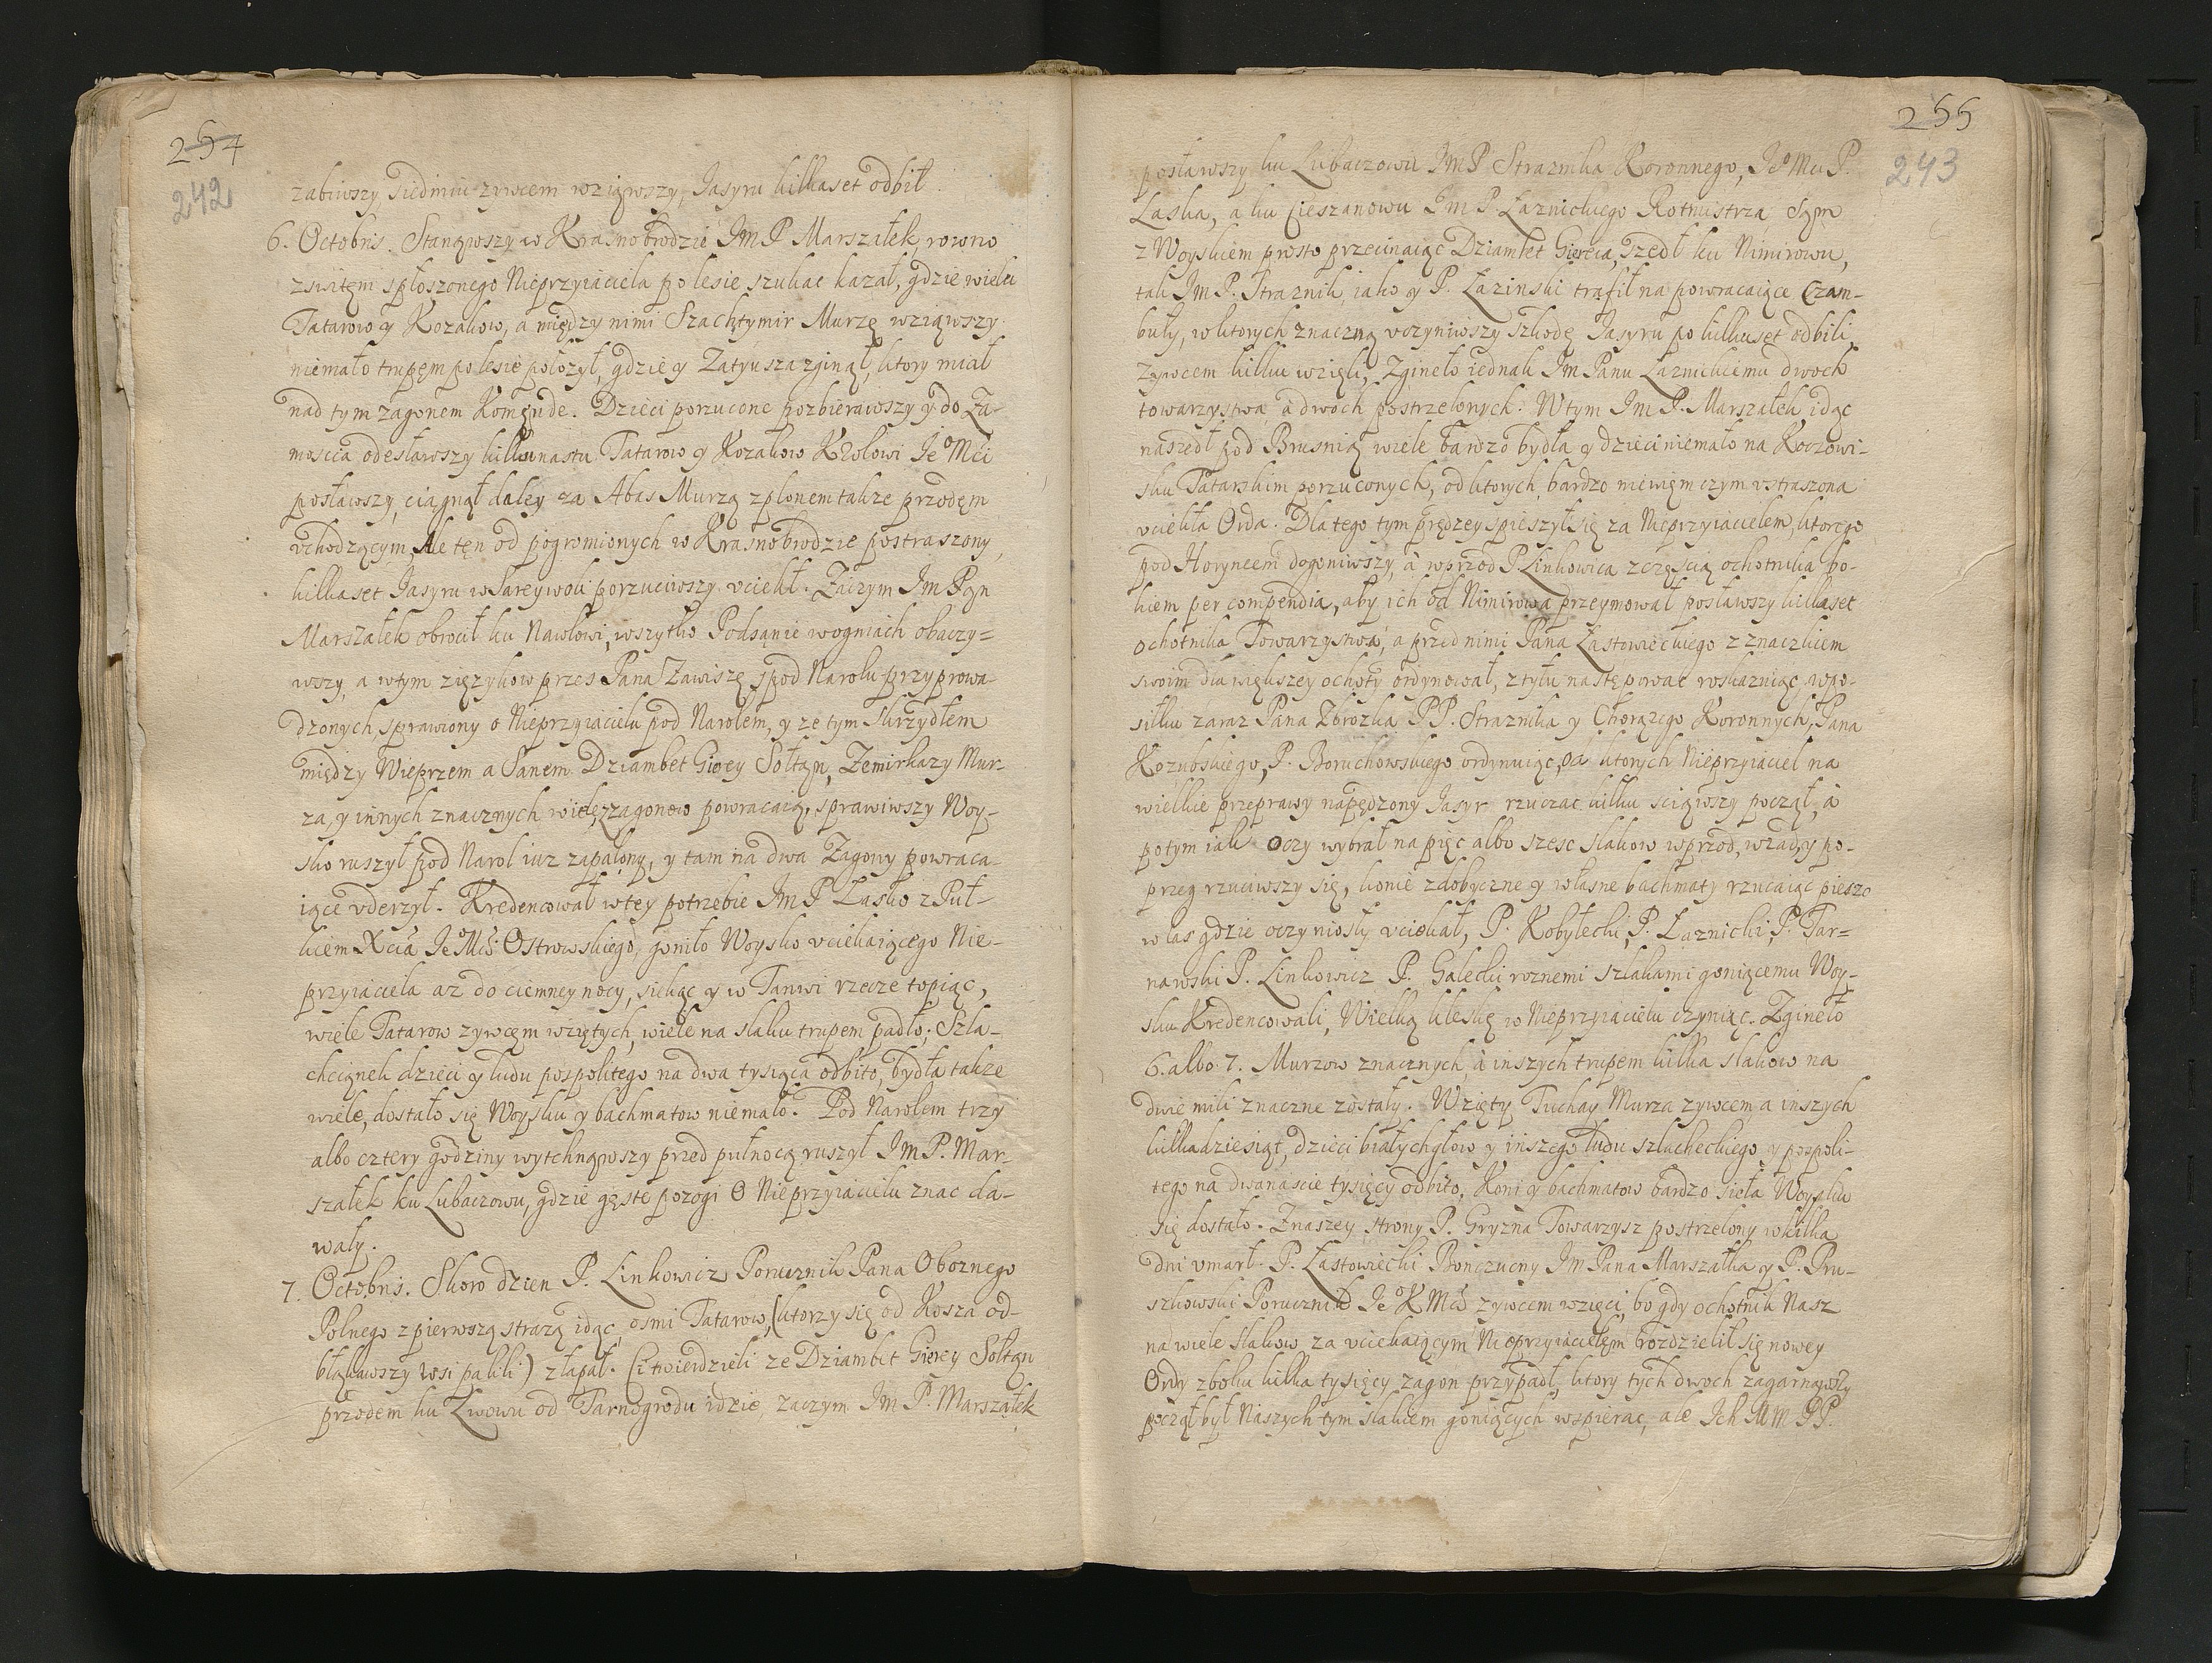 254
242
zabiwszy siedmiu zywcem wziąwszy, Jasyru kilkaset odbił.
6. Octobris. Stanąwszy w Krasnobrodzie Im P Marszałek, rowno
zswitem spłoszonego Nieprzyiaciela po lesie szukac kazał, gdzie wielu
Tatarow y Kozakow, a między nimi Szachtymir Murzę wziąwszy
niemało trupęm po lesie położył, gdzie y Zatyusza zginął, ktory miał
nad tym zagonem Komęnde. Dzieci porzucone pozbierawszy y do Za-
moscia odesławszy kilkunastu Tatarow y Kozakow Krolowi Je Mci
posławszy, ciągnął daley za Abas Murzą zplonem takze przodęm
vchodzącym, Ale tęn od pogromionych w Krasnobrodzie postraszony,
kilkaset Jasyru w Sareywoli porzuciwszy vciekł. Zaczym Im Pan
Marszałek obrocił ku Narolowi, wszytko Podsanie wogniach obaczy=
wszy, a wtym zięzykow przes Pana Zawiszę zpod Narolu przyprowa-
dzonych, sprawiony o Nieprzyiacielu pod Narolem, y ze tym skrzydłem
między Wieprzem a Sanem Dziambet Gierey Sołtąn, Zemirkazy Mur-
za, y innych znacznych wiele zzagonow powracaią, sprawiwszy Woy-
sko ruszył pod Narol iuz zapalony, y tam na dwa Zagony powraca-
iące vderzył. Kredencował wtey potrzebie Im P Lasko z Puł-
kiem Xcia Je Mci Ostrowskiego, goniło Woysko vciekaiącego Nie-
przyiaciela az do ciemney nocy, siekąc y w Tanwi rzecze topiąc,
wiele Tatarow zywcęm wziętych, wiele na slaku trupem padło; Szla-
chcianek dzieci y ludu pospolitego na dwa tysiąca odbito, bydła takze
wiele, dostało się Woysku y bachmatow niemało. Pod Narolem trzy
albo cztery godziny wytchnąwszy przed pułnocą ruszył Im P. Mar-
szałek ku Lubaczowu, gdzie gęste pozogi o Nieprzyiacielu znac da-
wały.
7. Octobris. Skoro dzien P. Linkowicz Porucznik Pana Oboznego
Polnego zpierwszą strażą idąc, osmi Tatarow, (ktorzy się od Kosza od-
błąkawszy wsi palili) złapał. Ci twierdzieli ze Dziambet Gierey Sołtąn
przodem ku Lwowu od Tarnogrodu idzie, zaczym Im P. Marszałek
255
243
posławszy ku Lubaczowu Im P Straznika Koronnego, Je Mci P.
Laska, a ku Cieszanowu Im P. Łaznickiego Rotmistrza, Sąm
z Woyskiem prosto przecinaiąc Dziambet Giereia, szedł ku Nimirowu,
tak Im P. Straznik, iako y P. Łazinski trafił na powracaiące Czam-
buły, w ktorych znaczną vczyniwszy szkodę Jasyru po kilkuset odbili,
Zywcem kilku wzieli, Zgineło iednak Im Panu Łaznickiemu dwoch
towarzystwa, a dwoch postrzelonych. Wtym Im P. Marszałek idąc
naszedł pod Brusnią wiele bardzo bydła y dzieci niemało na Koczowi-
sku Tatarskim porzuconych, od ktorych, bardzo niewięm czym vstraszona
vciekła Orda. Dla tego tym prędzey spieszył się za Nieprzyiacielem, ktorego
pod Horyncem dogoniwszy, a wprzod P Linkowica zczęscią ochotnika bo-
kiem per compendia, aby ich od Nimirowa przeymował posławszy kilkaset
ochotnika Towarzystwa, a przed nimi Pana Łastowieckiego z znaczkiem
swoim dla większey ochoty ordynował, ztyłu następowac roskazuiąc, wpo-
siłku zaraz Pana Zbrozka PP. Straznika y Chorążego Koronnych, Pana
Kozubskiego, P. Boruchowskiego ordynuiąc, od ktorych Nieprzyiaciel na
wielkie przeprawy napędzony Jasyr rzucac kilku sciąwszy począł, a
potym iak oczy wybrał na pięc albo szesc slakow wprzod, wzad, y po-
przeg rzuciwszy się, konie zdobyczne y własne bachmaty rzucaiąc pieszo
w las gdzie oczy niosły vciekał, P. Kobyłecki, P. Łaznicki, P. Tar=
nawski P. Linkowicz P. Galecki roznemi szlakami goniącemu Woy-
sku Kredencowali, Wielką klęskę w Nieprzyiacielu czyniąc. Zgineło
6. albo 7. Murzow znacznych, a inszych trupem kilka slakow na
dwie mili znaczne zostały. Wzięty Tuchay Murza zywcem a inszych
kilkadziesiąt, dzieci białychgłow y inszego ludu szlacheckiego y pospoli-
tego na dwanascie tysięcy odbito, Koni y bachmatow bardzo siła Woysku
się dostało. Znaszey strony P. Gryzna Towarzysz postrzelony wkilka
dni vmarł. P. Łastowiecki Bonczuczny Im Pana Marszałka y P. Pru-
szkowski Porucznik Je K Mci zywcem wzięci, bo gdy ochotnik Nasz
na wiele slakow za vciekaiącym Nieprzyiacielęm rozdzielił się nowey
Ordy zboku kilka tysięcy zagon przypadł, ktory tych dwoch zagarnąwszy
począł był Naszych tym slakiem goniących wspierac, ale Ich MM PP.